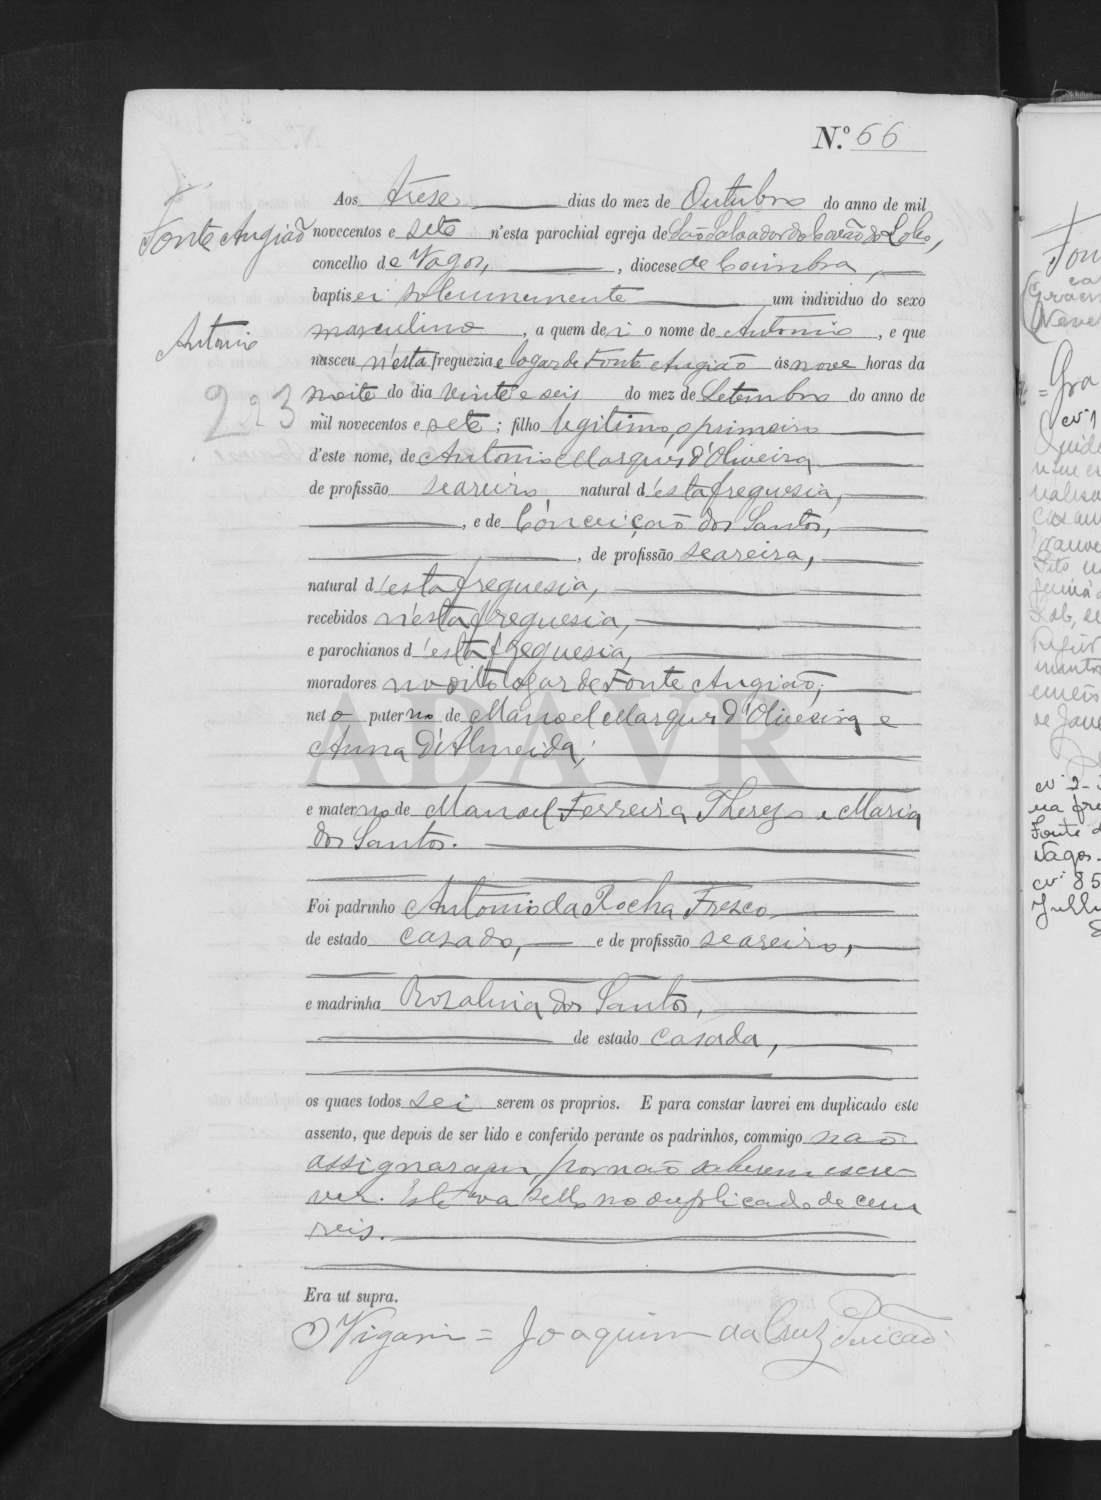 N.º 66
Aos trese dias do mez de Outubro do anno de mil
Fonte Angião
novecentos e sete n'esta parochial egreja de São Salvador do Covão do Lobo,
concelho de Vagos, , diocese de Coimbra,
baptisei solemnemente um individuo do sexo
Antonio
masculino , a quem dei o nome de Antonio , e que
nasceu n'esta freguezia e logar de Fonte Angião ás nove horas da
223
noite do dia vinte e seis do mez de Setembro do anno de
mil novecentos e sete ; filho legitimo, o primeiro
d'este nome, de Antonio Marques d'Oliveira
de profissão seareiro, natural d'esta freguesia,
, e de Conceição dos Santos,
, de profissão seareira,
natural d'esta freguesia,
recebidos n'esta freguesia,
e parochianos d'esta freguesia,
moradores no dito logar de Fonte Angião;
neto paterno de Manoel Marques d'Oliveira e
Anna d'Almeida;
e materno de Manoel Ferreira Therezo e Maria
dos Santos.
Foi padrinho Antonio da Rocha Fresco
de estado casado, e de profissão seareiro,
e madrinha Rozalina dos Santos,
de estado casada,
os quaes todos sei serem os proprios. E para constar lavrei em duplicado este
assento, que depois de ser lido e conferido perante os padrinhos, commigo não
assignaram, por não saberem escre-
ver. Leva sello no duplicado de cem
reis.
Era ut supra.
O Vigario = Joaquim da Cruz
ADAVR